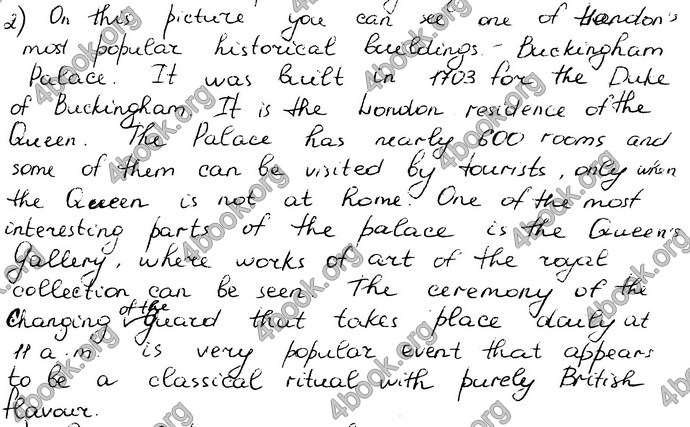 2) On this picture you can see one of London's
most popular historical buildings - Buckingham
Palace. It was built in 1703 for the Duke
of Buckingham. It is the London residence of the
Queen. The Palace has nearly 600 rooms and
some of them can be visited by tourists, only when
the Queen is not at home. One of the most
interesting parts of the palace is the Queen's
Gallery, where works of art of the royal
collection can be seen. The ceremony of the
Changing of the guard that takes place daily at
11 a.m. is very popular event that appears
to be a classical ritual with purely British
flavour.
4book.org